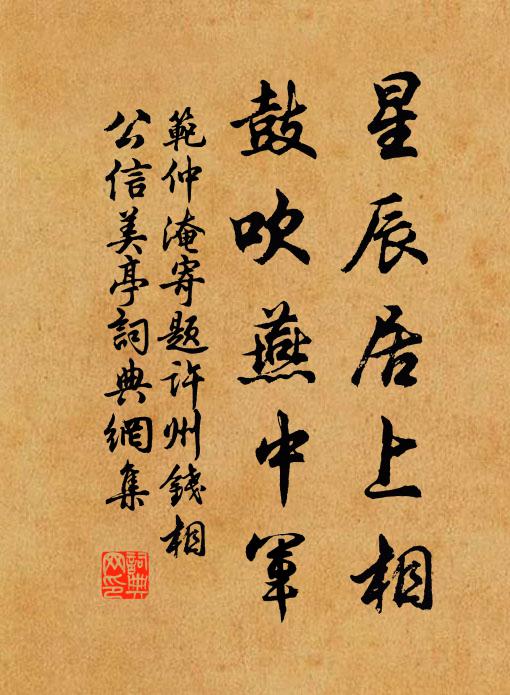 星辰居上相
鼓吹燕中軍
範仲淹寄題許州錢相
公信美亭詞典網集
詞典网印